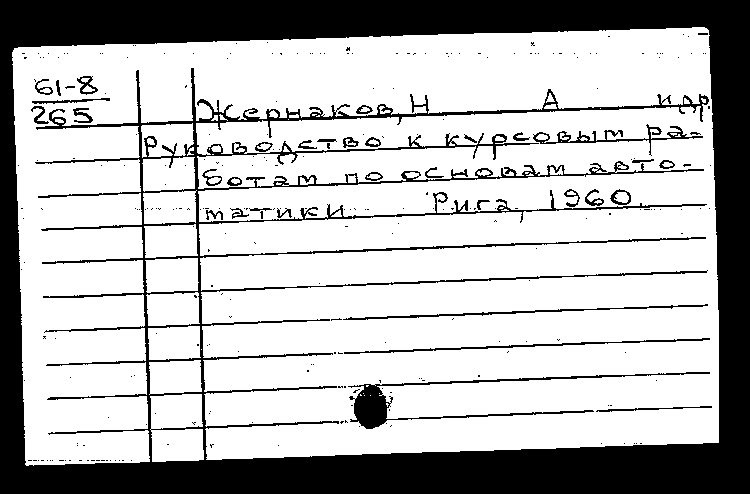 61-8
265
Жернаков, Н А и др.
Руководство к курсовым ра-
ботам по основам авто-
матики. Рига, 1960.